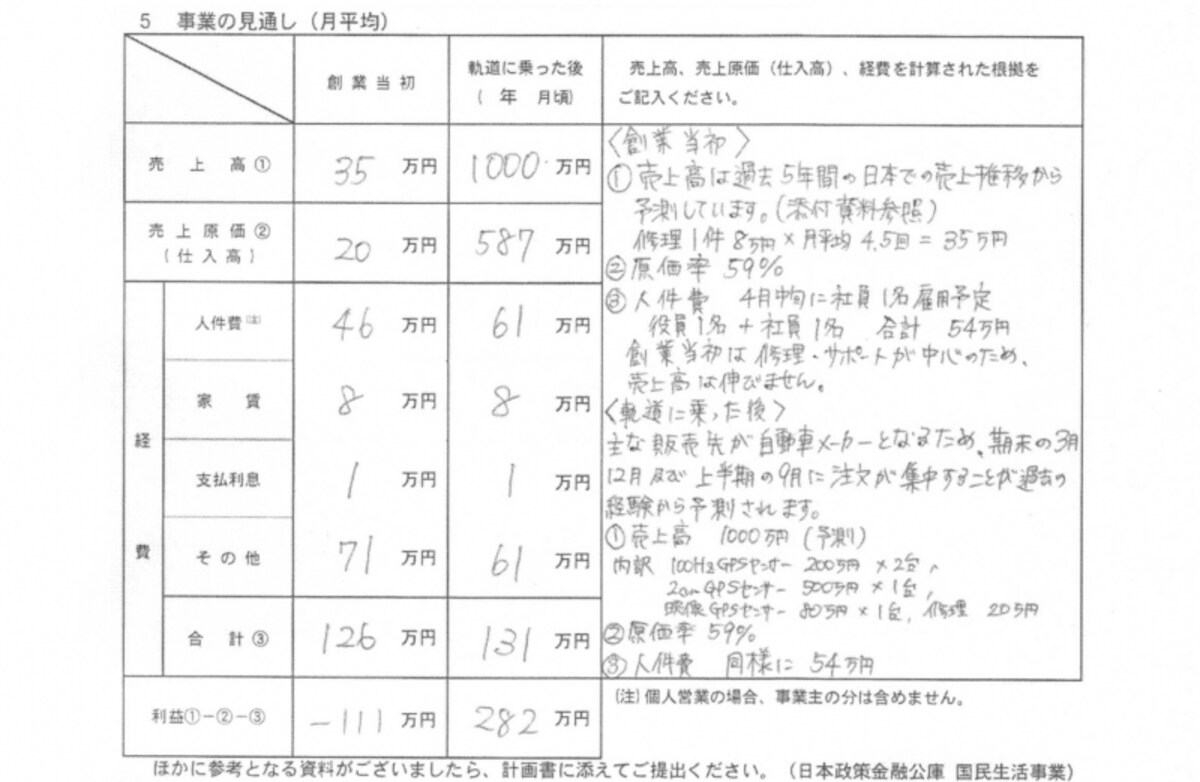 5 事業の見通し（月平均）
創業当初
軌道に乗った後
（ 年 月頃）
売上高、売上原価（仕入高）、経費を計算された根拠を
ご記入ください。
売上高① 35 万円 1000 万円
売上原価②
（仕入高） 20 万円 587 万円
経費
人件費（注） 46 万円 61 万円
家賃 8 万円 8 万円
支払利息 1 万円 1 万円
その他 71 万円 61 万円
合計③ 126 万円 131 万円
利益①－②－③ -111 万円 282 万円
〈創業当初〉
① 売上高は過去5年間の日本での売上推移から
予測しています。(添付資料参照)
修理1件 8万円×月平均 4.5回 = 35万円
② 原価率 59%
③ 人件費 4月中旬に社員1名雇用予定
役員1名 + 社員1名 合計 54万円
創業当初は修理・サポートが中心のため、
売上高は伸びません。
〈軌道に乗った後〉
主な販売先が自動車メーカーとなるため、期末の3月
12月及び上半期の9月に注文が集中することが過去の
経験から予測されます。
① 売上高 1000万円 (予測)
内訳 100HzGPSセンサー 200万円×2台、
2cmGPSセンサー 500万円×1台、
映像GPSセンサー 80万円×1台、修理 20万円
② 原価率 59%
③ 人件費 同様に 54万円
（注）個人営業の場合、事業主の分は含めません。
ほかに参考となる資料がございましたら、計画書に添えてご提出ください。（日本政策金融公庫 国民生活事業）